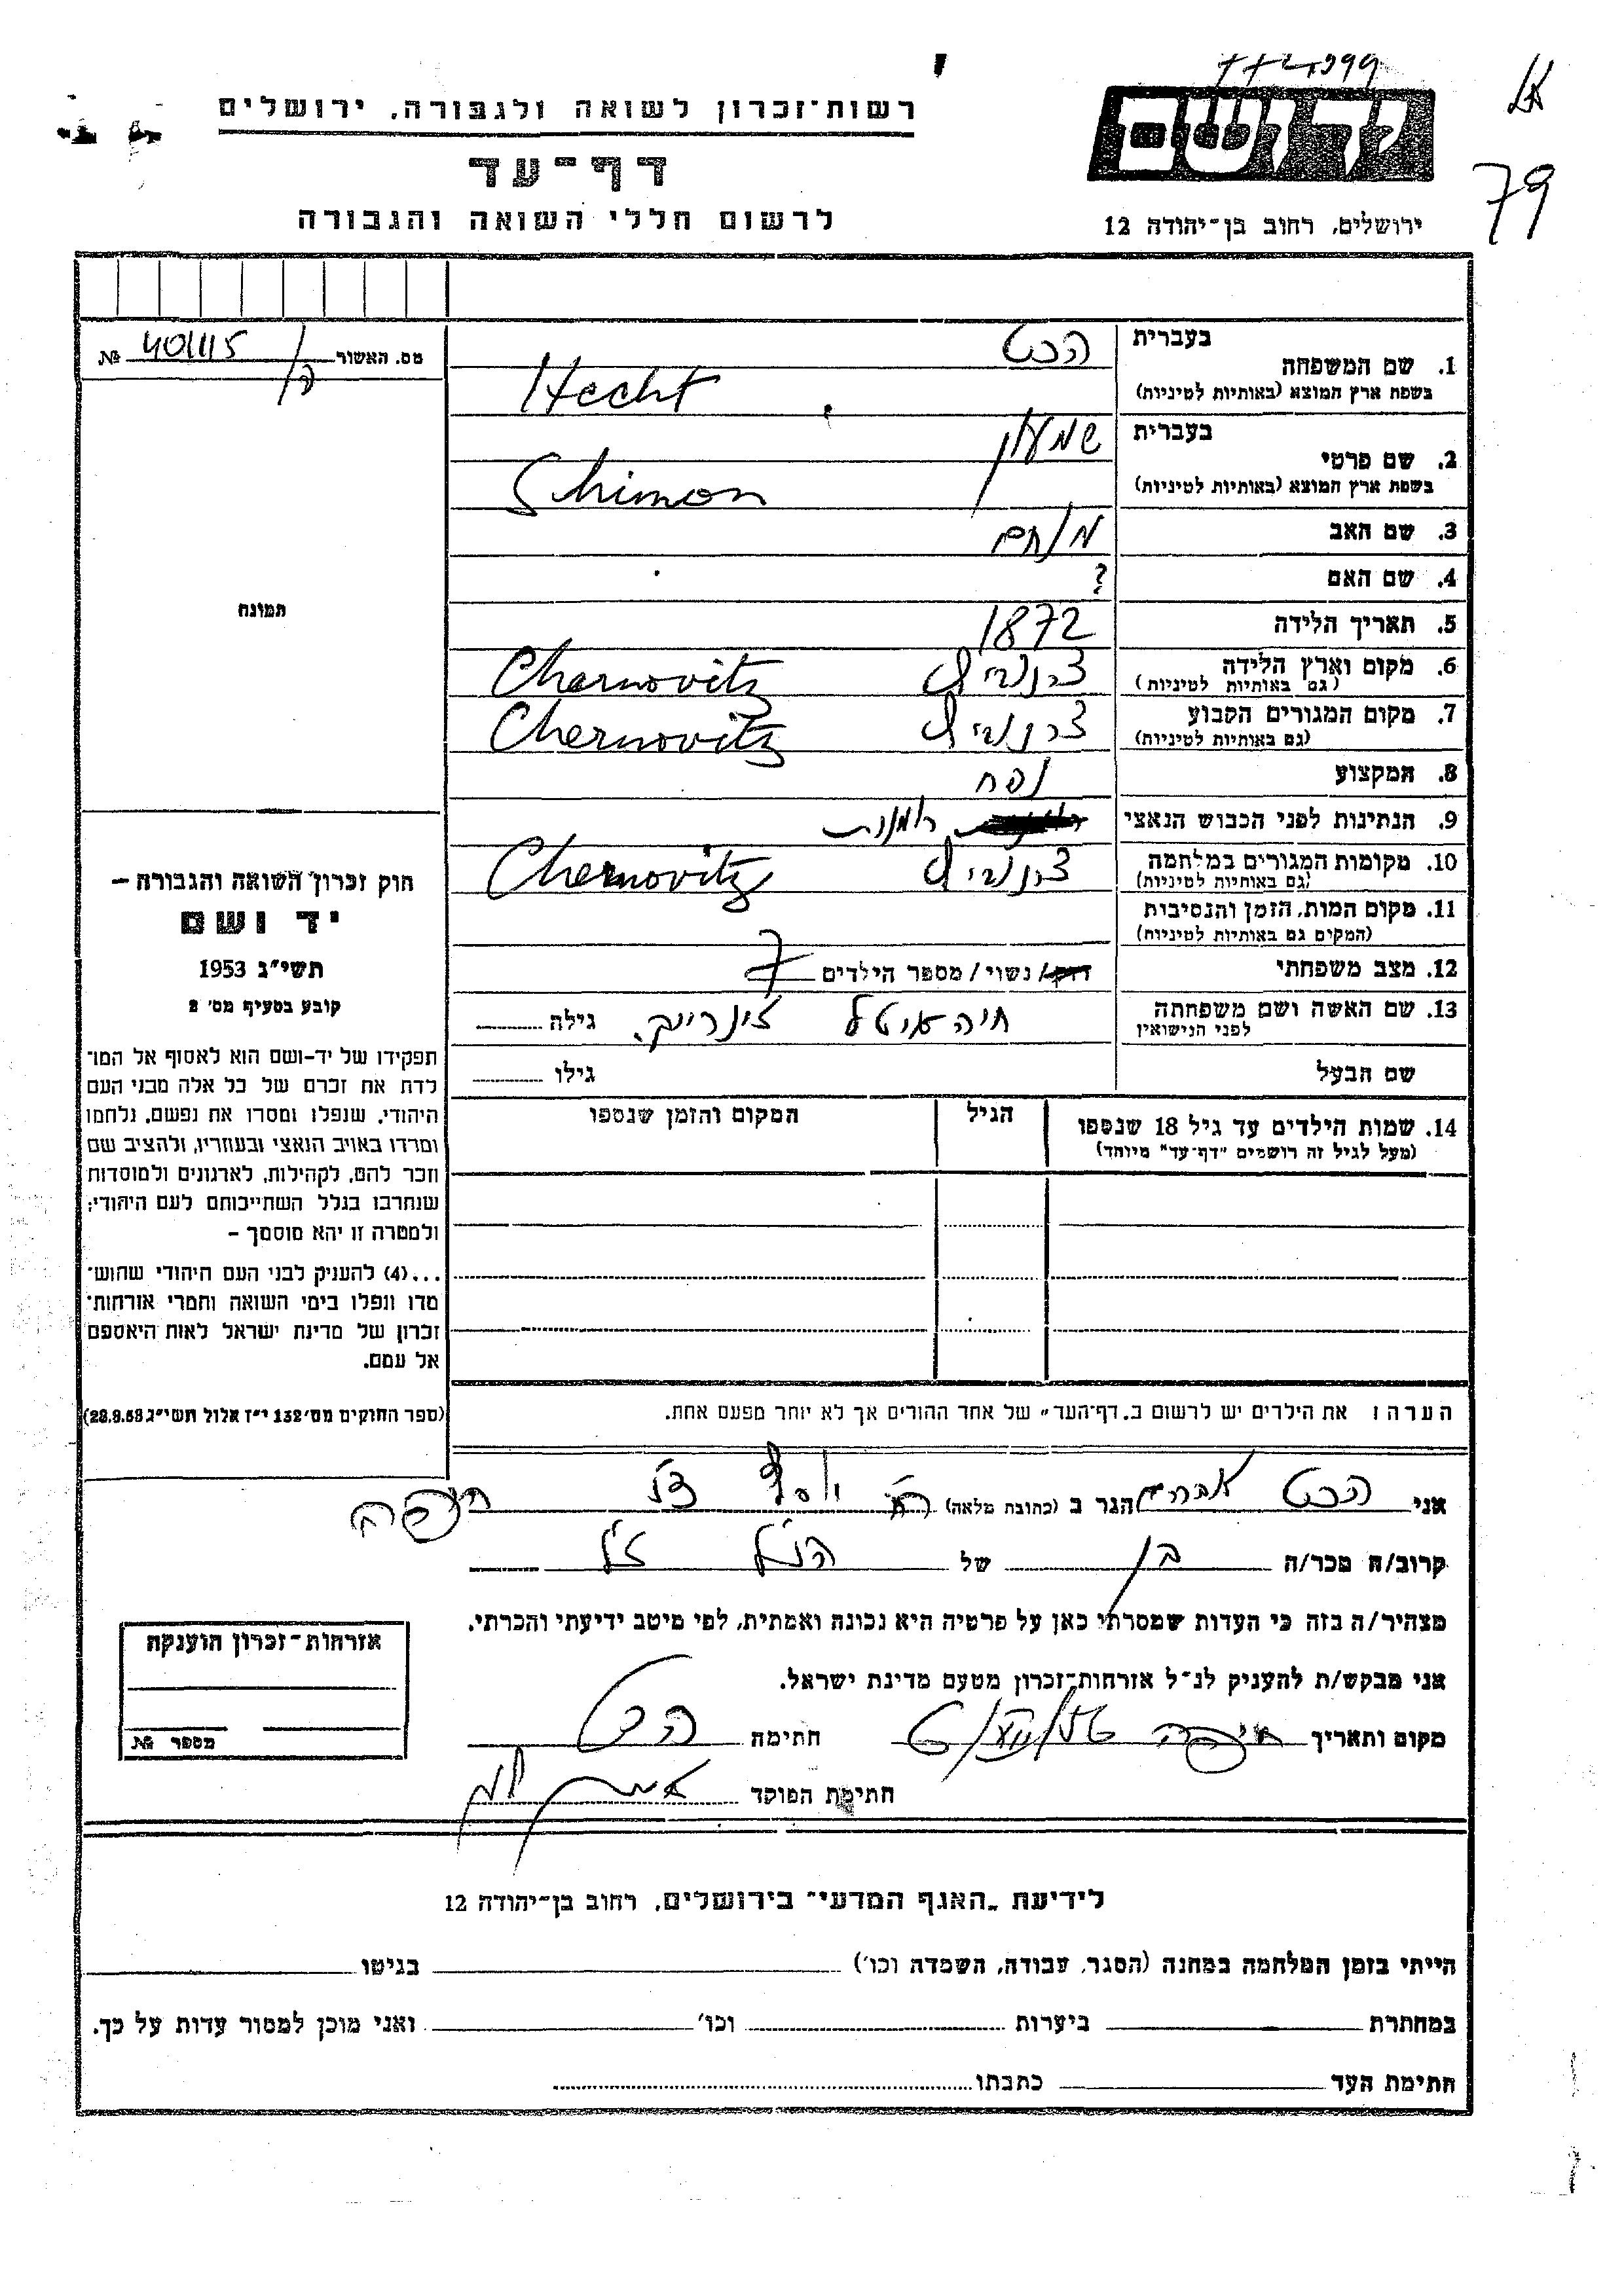 רשות־זכרון לשואה ולגבורה, ירושלים
דף־עד
לרשום חללי השואה והגבורה
ידושם
ירושלים, רחוב בן־יהודה 12
79
מס. האשור № 401115
תמונה
חוק זכרון השואה והגבורה –
יד ושם
תשי״ג 1953
קובע בסעיף מס׳ 2
תפקידו של יד-ושם הוא לאסוף אל המו־
לדת את זכרם של כל אלה מבני העם
היהודי, שנפלו ומסרו את נפשם, נלחמו
ומרדו באויב הנאצי ובעוזריו, ולהציב שם
וזכר להם, לקהילות, לארגונים ולמוסדות
שנחרבו בגלל השתייכותם לעם היהודי;
ולמטרה זו יהא מוסמך –
...(4) להעניק לבני העם היהודי שהוש־
מדו ונפלו בימי השואה והמרי אזרחות־
זכרון של מדינת ישראל לאות היאספם
אל עמם.
(ספר החוקים מס׳ 132 י״ז אלול תשי״ג 28.8.53)
בעברית הכט
1. שם המשפחה
בשפת ארץ המוצא (באותיות לטיניות) Hecht
בעברית שמעון
2. שם פרטי
בשפת ארץ המוצא (באותיות לטיניות) Shimon
3. שם האב מנחם
4. שם האם ?
5. תאריך הלידה 1872
6. מקום וארץ הלידה צרנוביץ Charnovitz
(גם באותיות לטיניות)
7. מקום המגורים הקבוע צרנוביץ Chernovitz
(גם באותיות לטיניות)
8. המקצוע נפח
9. הנתינות לפני הכבוש הנאצי רומנית
10. מקומות המגורים במלחמה צרנוביץ Chernovitz
(גם באותיות לטיניות)
11. מקום המות, הזמן והנסיבות
(המקום גם באותיות לטיניות)
12. מצב משפחתי רווק/ נשוי/ מספר הילדים 7
13. שם האשה ושם משפחתה חיה גילה
לפני הנישואין
שם הבעל גילו
14. שמות הילדים עד גיל 18 שנספו הגיל המקום והזמן שנספו
(מעל לגיל זה רושמים "דף־עד" מיוחד)
הערה: את הילדים יש לרשום ב„דף־העד" של אחד ההורים אך לא יותר מפעם אחת.
אני הכט אברהם הגר ב (כתובת מלאה) יוסף חיפה
קרוב/ה מכר/ה בן של הנ״ל ז״ל
מצהיר/ה בזה כי העדות שמסרתי כאן על פרטיה היא נכונה ואמתית, לפי מיטב ידיעתי והכרתי.
אני מבקש/ת להעניק לנ־ל אזרחות־זכרון מטעם מדינת ישראל.
מקום ותאריך חיפה חתימה הכט
חתימת הפוקד
אזרחות־זכרון הוענקה
מספר №
לידיעת „האגף המדעי" בירושלים, רחוב בן־יהודה 12
הייתי בזמן המלחמה במחנה (הסגר, עבודה, השמדה וכו׳) בגיטו
במחתרת ביערות וכו׳ ואני מוכן למסור עדות על כך.
חתימת העד כתבתו